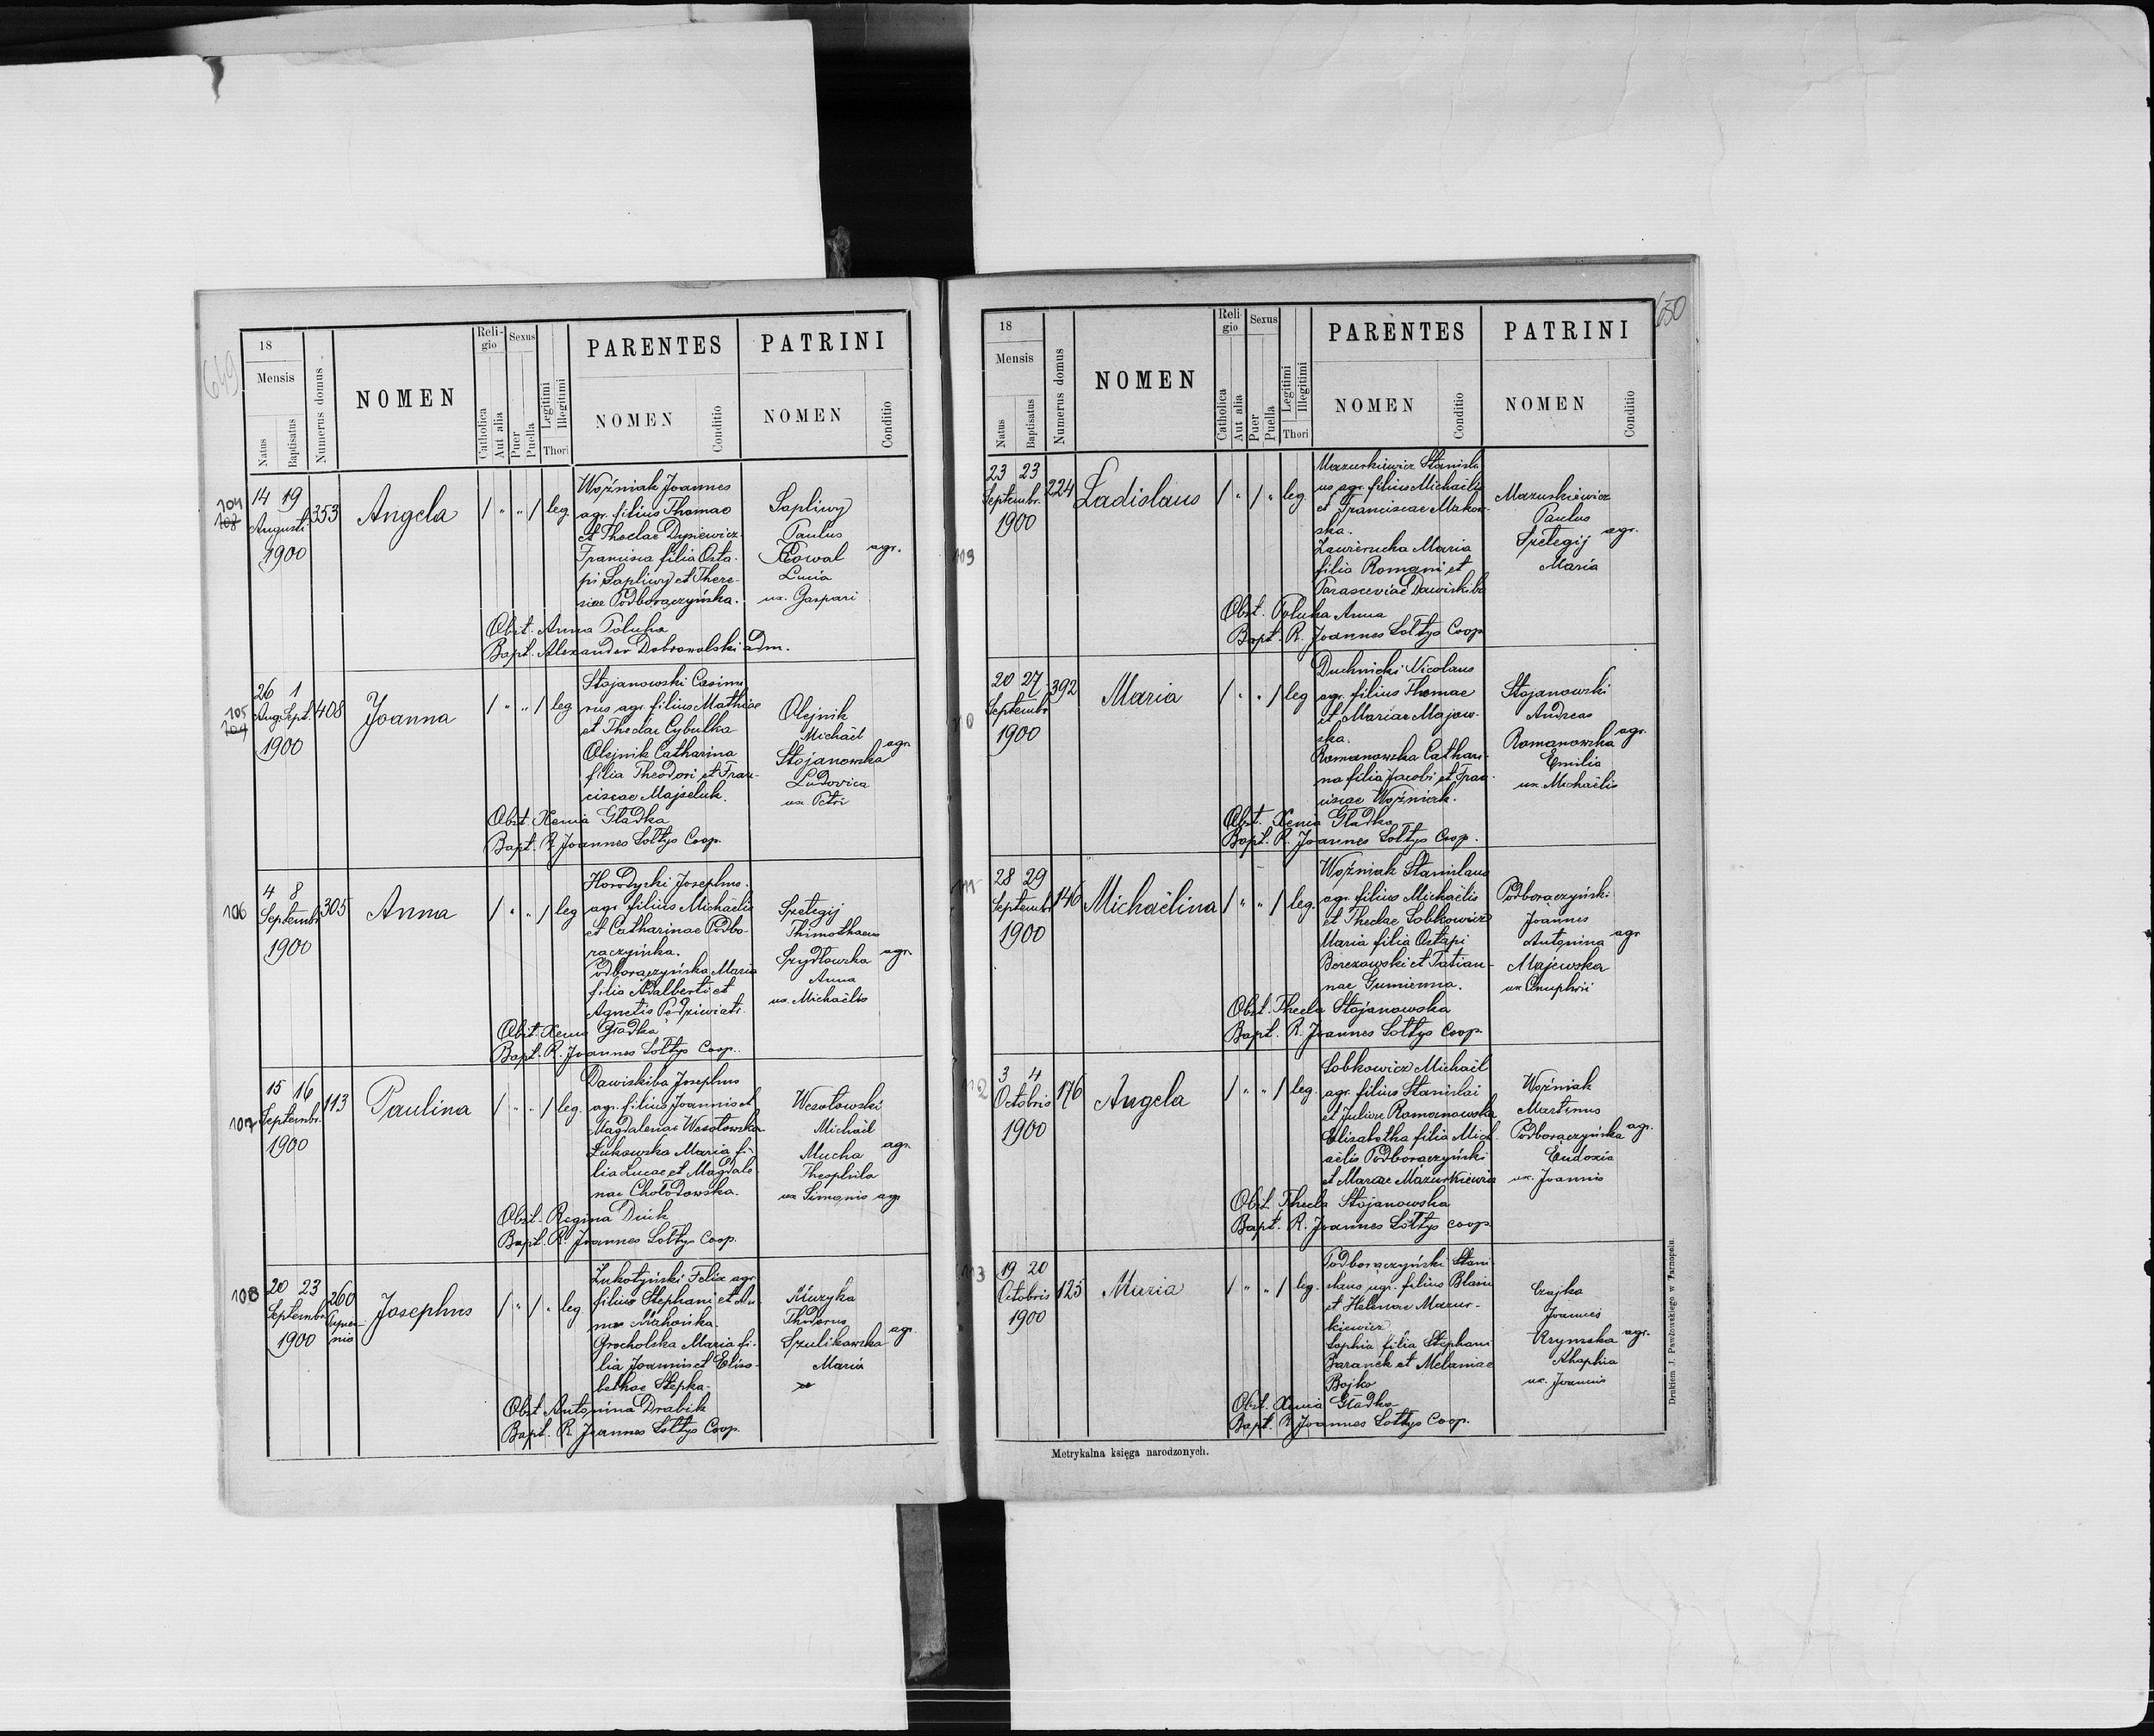 649
18
Mensis
Natus
Baptisatus
Numerus domus
NOMEN
Reli-
gio
Catholica
Aut alia
Sexus
Puer
Puella
Legitimi
Illegitimi
Thori
PARENTES
NOMEN
Conditio
PATRINI
NOMEN
Conditio
104
14 19
Augusti
1900
353
Angela
/ " " / leg.
Woźniak Joannes
agr. filius Thomae
et Theclae Dysiewicz.
Francisca filia Osta-
pi Sapliwy et There-
siae Podborączyńska.
Sapliwy
Paulus
Kowal agr.
Lucia
ux. Gaspari
Obst. Anna Poluha
Bapt. Alexander Dobrowolski Adm.
105
26 1
Aug. Sept.
1900
408
Joanna
/ " " / leg
Stojanowski Casimi
rus agr. filius Mathiae
et Theclae Cybulka
Olejnik Catharina
filia Theodori et Fran-
ciscae Majseluk.
Olejnik
Michaël
Stojanowska agr.
Ludovica
ux. Petri
Obst. Xenia Gładka
Bapt. R. Joannes Sołtys Coop.
106
4 8
Septembr.
1900
305
Anna
/ " " / leg
Horodyski Josephus.
agr. filius Michaëlis
et Catharinae Podbo-
raczyńska.
Podborączyńska Maria
filia Adalberti et
Agnetis Podziewiatr.
Szelegij
Thimothaeus
Szydłowska agr.
Anna
ux. Michaëlis
Obst. Xenia Gładka
Bapt. R. Joannes Sołtys Coop.
107
15 16
Septembr.
1900
113
Paulina
/ " " / leg.
Dawiskiba Josephus
agr. filius Joannis et
Magdalenae Wesołowska
Łukowska Maria fi-
lia Lucae et Magdale-
nae Chołodowska.
Wesołowski
Michaël
Mucha agr.
Theophila
ux. Simonis agr
Obst. Regina Duik
Bapt. R. Joannes Sołtys Coop.
108
20 23
Septembr.
1900
260
Josephus
/ " / " leg.
Żukotyński Felix agr.
filius Stephani et An-
nae Mahońka.
Grocholska Maria fi-
lia Joannis et Elisa-
bethae Stepka.
Muzyka
Thodorus
Szulikowska agr.
Maria
Obst. Antonina Drabik
Bapt. R. Joannes Sołtys Coop.
650
18
Mensis
Natus
Baptisatus
Numerus domus
NOMEN
Reli-
gio
Catholica
Aut alia
Sexus
Puer
Puella
Legitimi
Illegitimi
Thori
PARENTES
NOMEN
Conditio
PATRINI
NOMEN
Conditio
109
23 23
Septembr.
1900
224
Ladislaus
/ " / " leg.
Mazurkiewicz Stanisla
us agr. filius Michaëlis
et Franciscae Makow-
ska.
Zawierucha Maria
filia Romani et
Parasceviae Dawiskiba
Mazurkiewicz
Paulus
Szelegij agr.
Maria
Obst. Poluha Anna
Bapt. R. Joannes Sołtys Coop
20 27
Septembr.
1900
392
Maria
/ " " / leg
Duchnicki Nicolaus
agr. filius Thomae
et Mariae Majew-
ska.
Romanowska Cathari-
na filia Jacobi et Fran-
ciscae Woźniak.
Stojanowski
Andreas
Romanowska agr.
Emilia
ux. Michaëlis
Obst. Xenia Gładka
Bapt. R. Joannes Sołtys Coop.
28 29
Septembr.
1900
146
Michaëlina
/ " " / leg.
Woźniak Stanislaus
agr. filius Michaëlis
et Theclae Sobkowicz
Maria filia Ostapi
Berezowski et Tatian-
nae Gumienna.
Podborączyński
Joannes
Antonina agr
Majewska
ux Onuphrii
Obst. Thecla Stojanowska
Bapt. R. Joannes Sołtys Coop.
3 4
Octobris
1900
176
Angela
/ " " / leg.
Sobkowicz Michaël
agr. filius Stanislai
et Juliae Romanowska
Elisabetha filia Mich-
aëlis Podborączyński
et Mariae Mazurkiewicz
Woźniak
Martinus
Podborączyńska agr.
Eudoxia
ux. Joannis
Obst. Thecla Stojanowska
Bapt. R. Joannes Sołtys coop.
113
19 20
Octobris
1900
125
Maria
/ " " / leg.
Podborączyński Stani-
slaus agr. filius Blasii
et Helenae Mazur-
kiewicz
Sophia filia Stephani
Baranek et Melaniae
Bojko
Czajka
Joannes
Krymska agr.
Ahaphia
ux. Joannis
Obst. Xenia Gładka
Bapt. R. Joannes Sołtys Coop.
Metrykalna księga narodzonych.
Drukiem J. Pawłowskiego w Tarnopolu